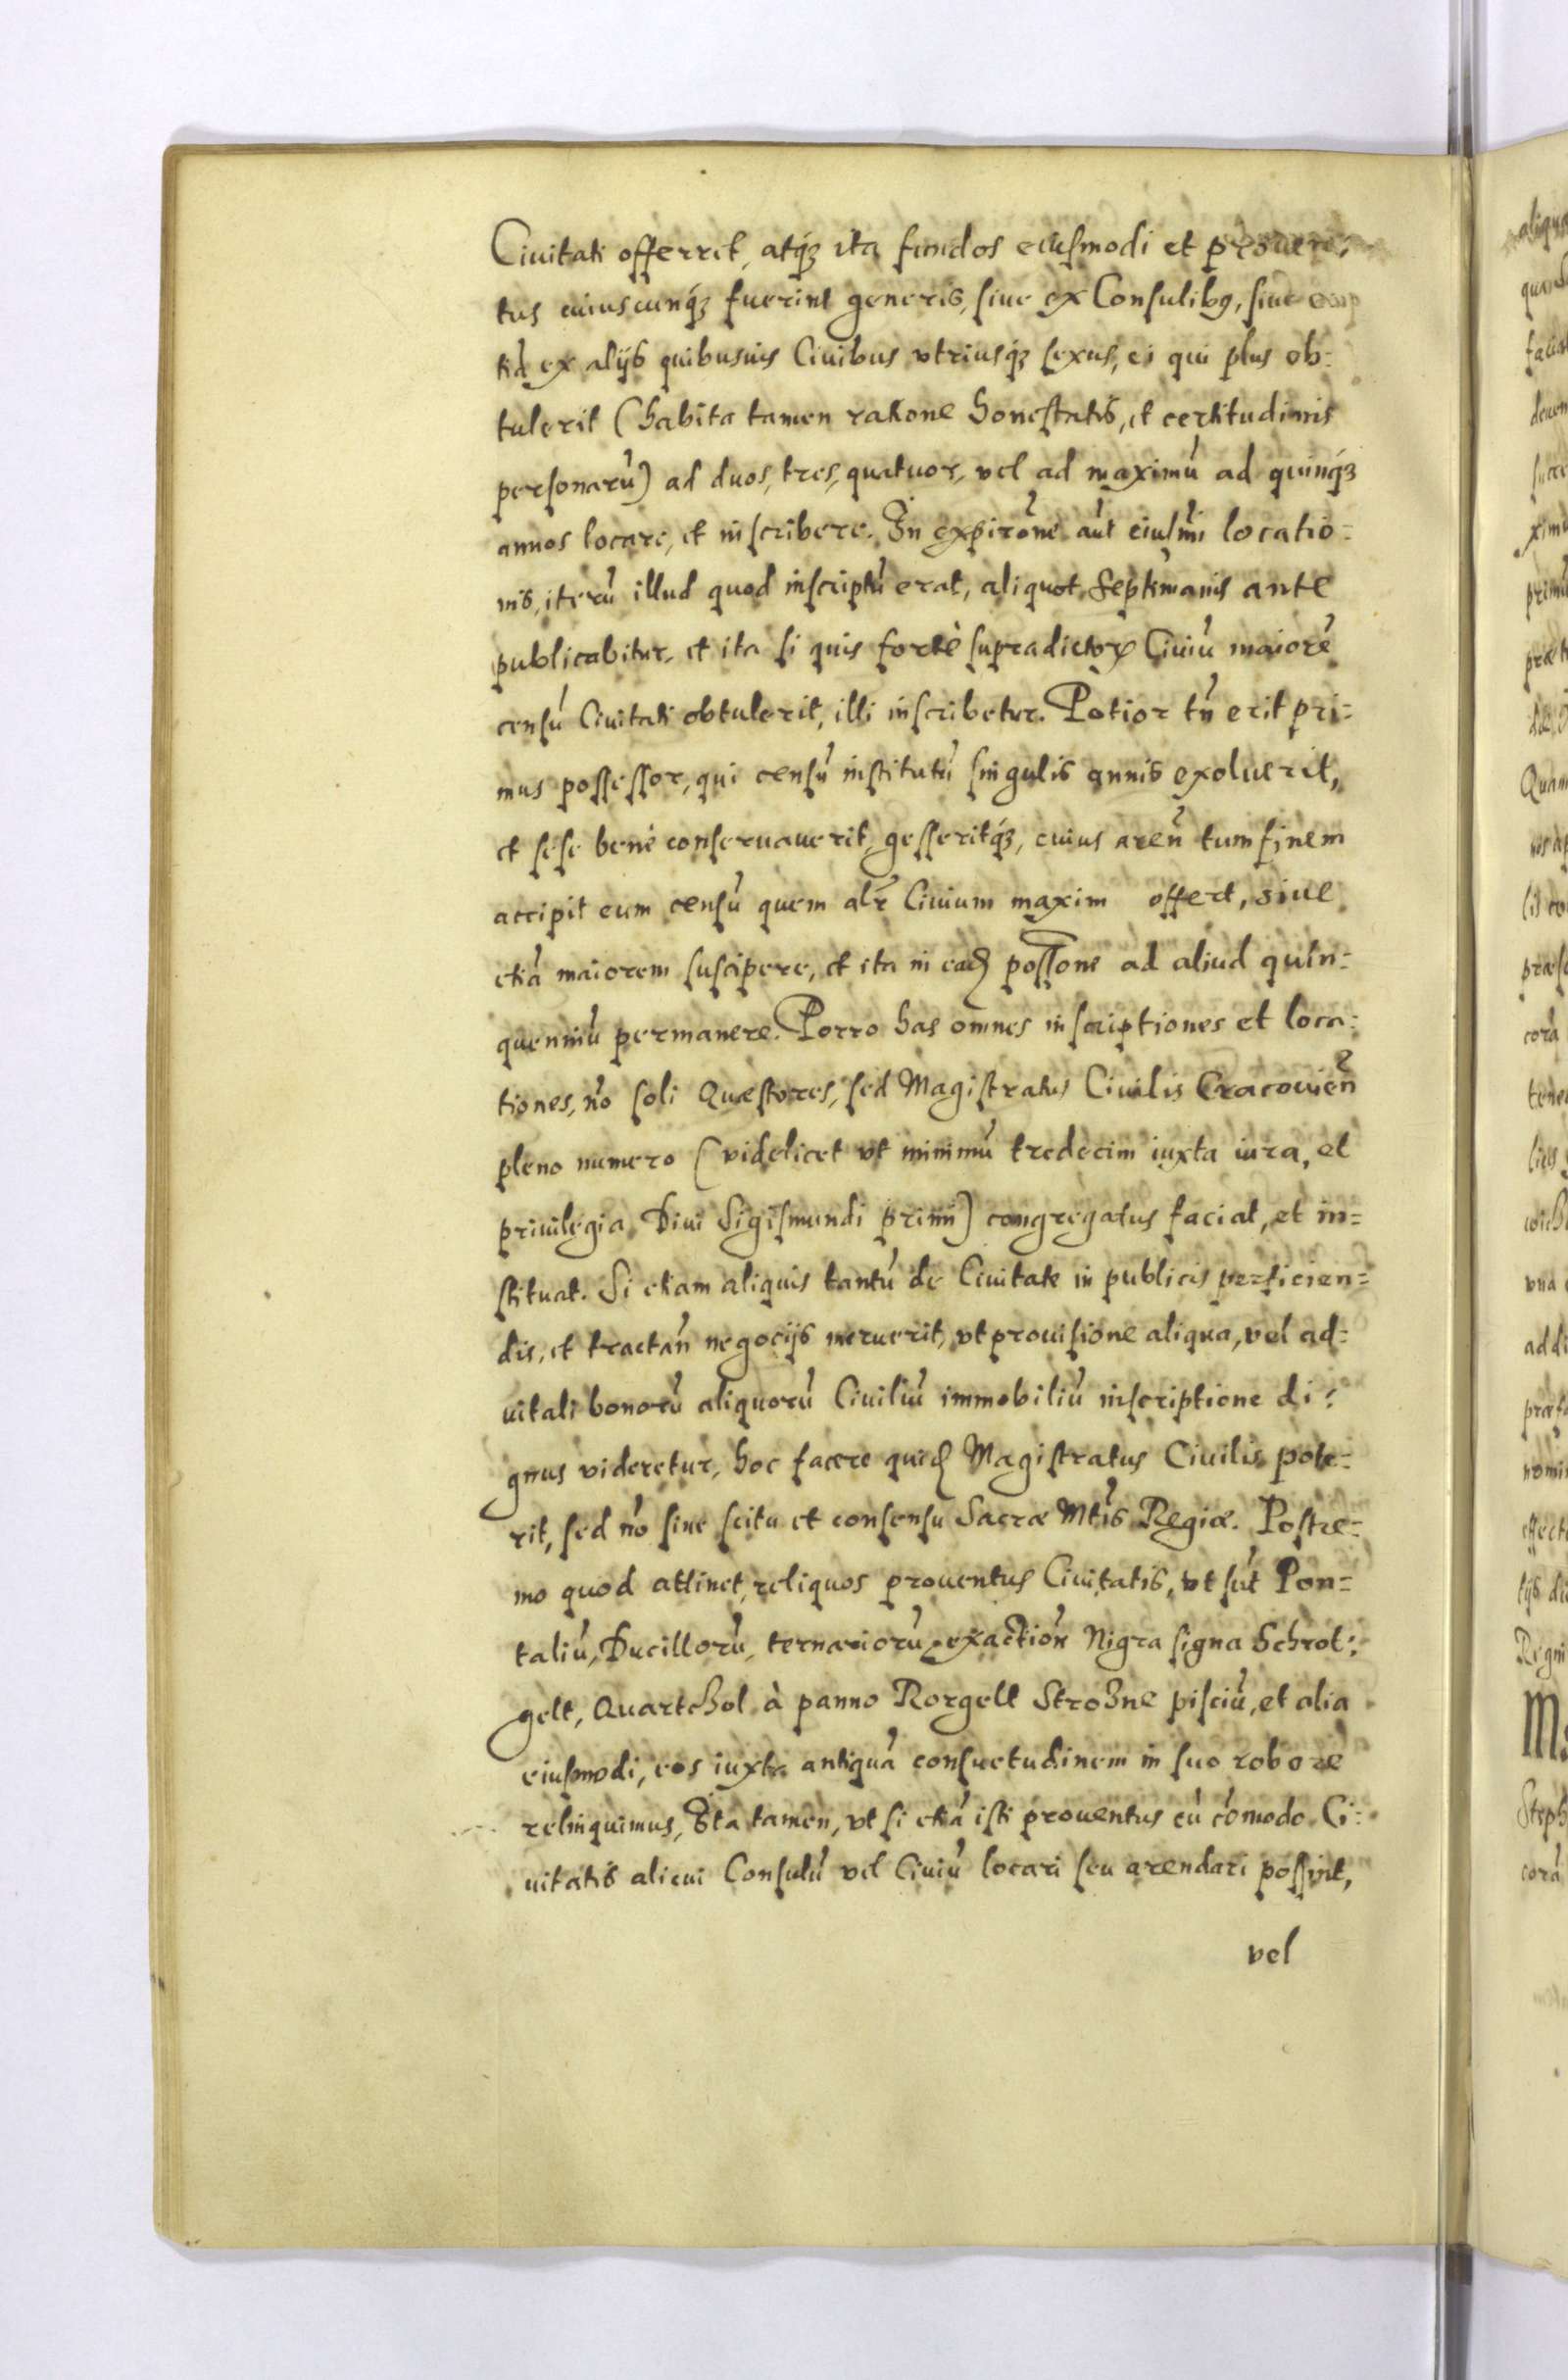 Ciuitati offerret, atq́ꝫ ita fundos eiusmodi et prouen:
tus cuiuscunq́ꝫ fuerint generis, siue ex Consulibꝰ, siue
ex alijs quibusuis Ciuibus vtriusq́ꝫ sexus, ei qui plus ob:
tulerit (habita tamen ratione honestatis, et certitudinis
personarũ) ad duos, tres, quatuor, vel ad maximũ ad quinq́ꝫ
annos locare, et inscribere. In expirõne aũt eiusm̃i locatio:
nis, iterũ illud quod inscriptũ erat, aliquot Septimanis ante
publicabitur, et ita si quis fortè supradictorꝝ Ciuiũ maiorẽ
censũ Ciuitati obtulerit, illi inscribetur. Potior tñ erit pri=
mus possessor, qui censũ institutũ singulis annis exoluerit,
et sese benè conseruauerit, gesseritq́ꝫ, cuius areñ tum finem
accipit eum censũ quem alr̃ Ciuium maxim offert, siue
etiã maiorem suscipere, et ita in eadꝫ possõne ad aliud quin=
quenniũ permanere. Porro has omnes inscriptiones et loca:
tiones, nõ soli Quæstores, sed Magistratus Ciuilis Cracouieñ
pleno numero (videlicet vt minimũ tredecim iuxta iura, et
priuilegia Diui Sigismundi primi) congregatus faciat, et in=
stituat. Si etiam aliquis tantũ de Ciuitate in publicis perficien=
dis, et tractañ negocijs meruerit, vt prouisione aliqua, vel ad=
uitali bonorũ aliquorũ Ciuiliũ immobiliũ inscriptione di:
gnus videretur, hoc facere quidꝫ Magistratus Ciuilis pote:
rit, sed nõ sine scitu et consensu Sacræ Mt̃is Regiæ. Postre=
mo quod attinet, reliquos prouentus Ciuitatis, vt sũt Pon=
taliũ, Ducillorũ, ternariorũ exactioñ Nigra signa Schrot:
gelt, Quartchol à panno Rorgelt Strozne pisciũ, et alia
eiusmodi, eos iuxta antiquã consuetudinem in suo robore
relinquimus, Ita tamen, vt si etiã isti prouentus cũ com̃odo Ci:
uitatis alicui Consulũ vel Ciuiũ locari seu arendari possint,
vel